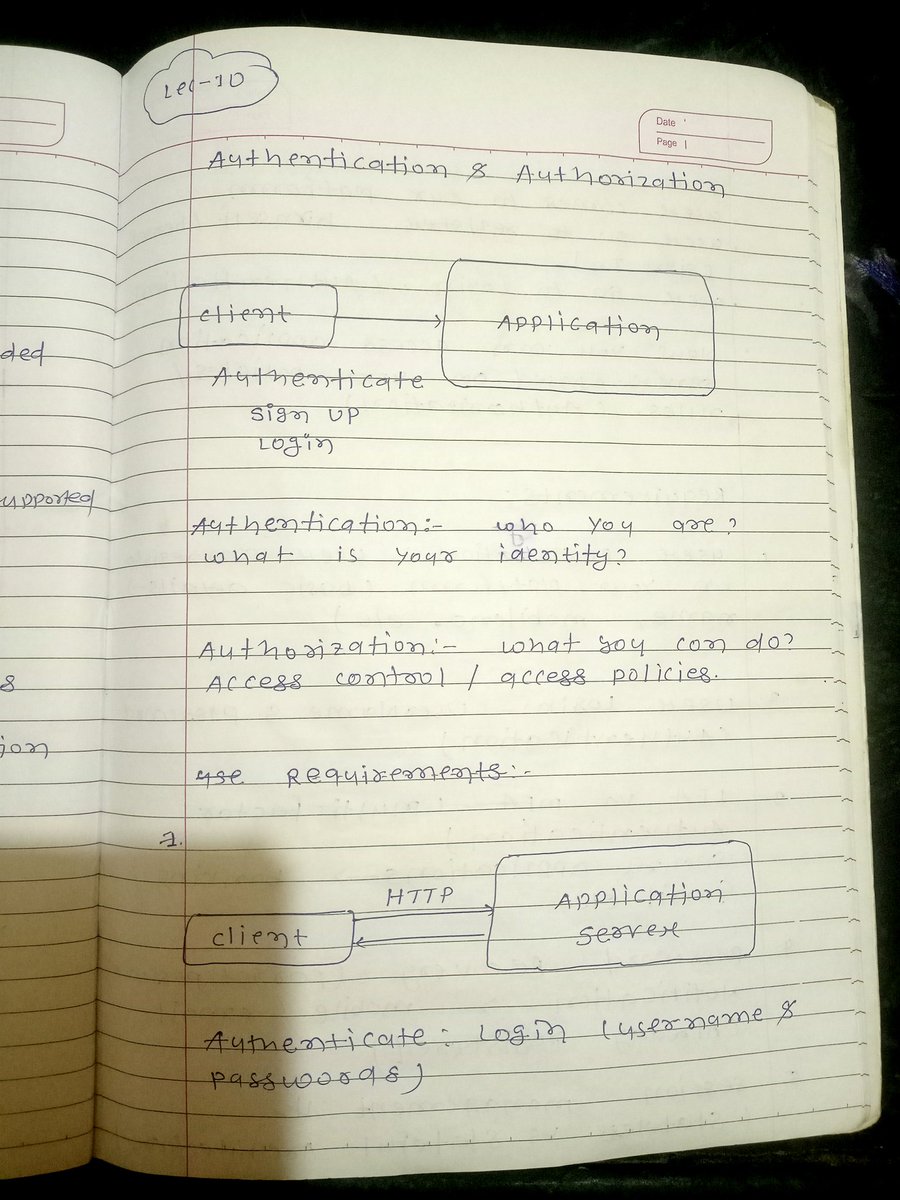 Lec-10
Date
Page 1
Authentication & Authorization
client
Application
Authenticate
Sign UP
Login
Authentication:- who you are?
what is your identity?
Authorization:- what you can do?
Access control / access policies.
use Requirements:-
1.
HTTP
client
Application
server
Authenticate: Login (username &
passwords)
ded
upported
s
ion